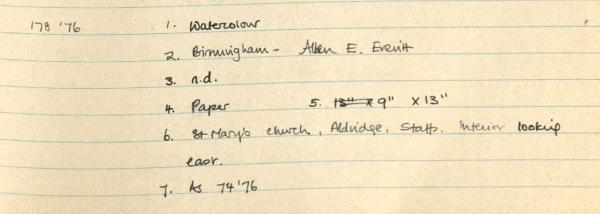 178 '76 1. Watercolour
2. Birmingham - Allen E. Everitt
3. n.d.
4. Paper 5. 13" x 9" x 13"
6. St Mary's church, Aldridge, Staffs. Interior looking
east.
7. As 74 '76